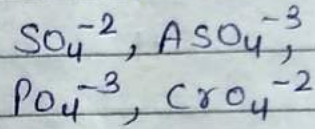 SO₄⁻², ASO₄⁻³,
PO₄⁻³, CrO₄⁻²